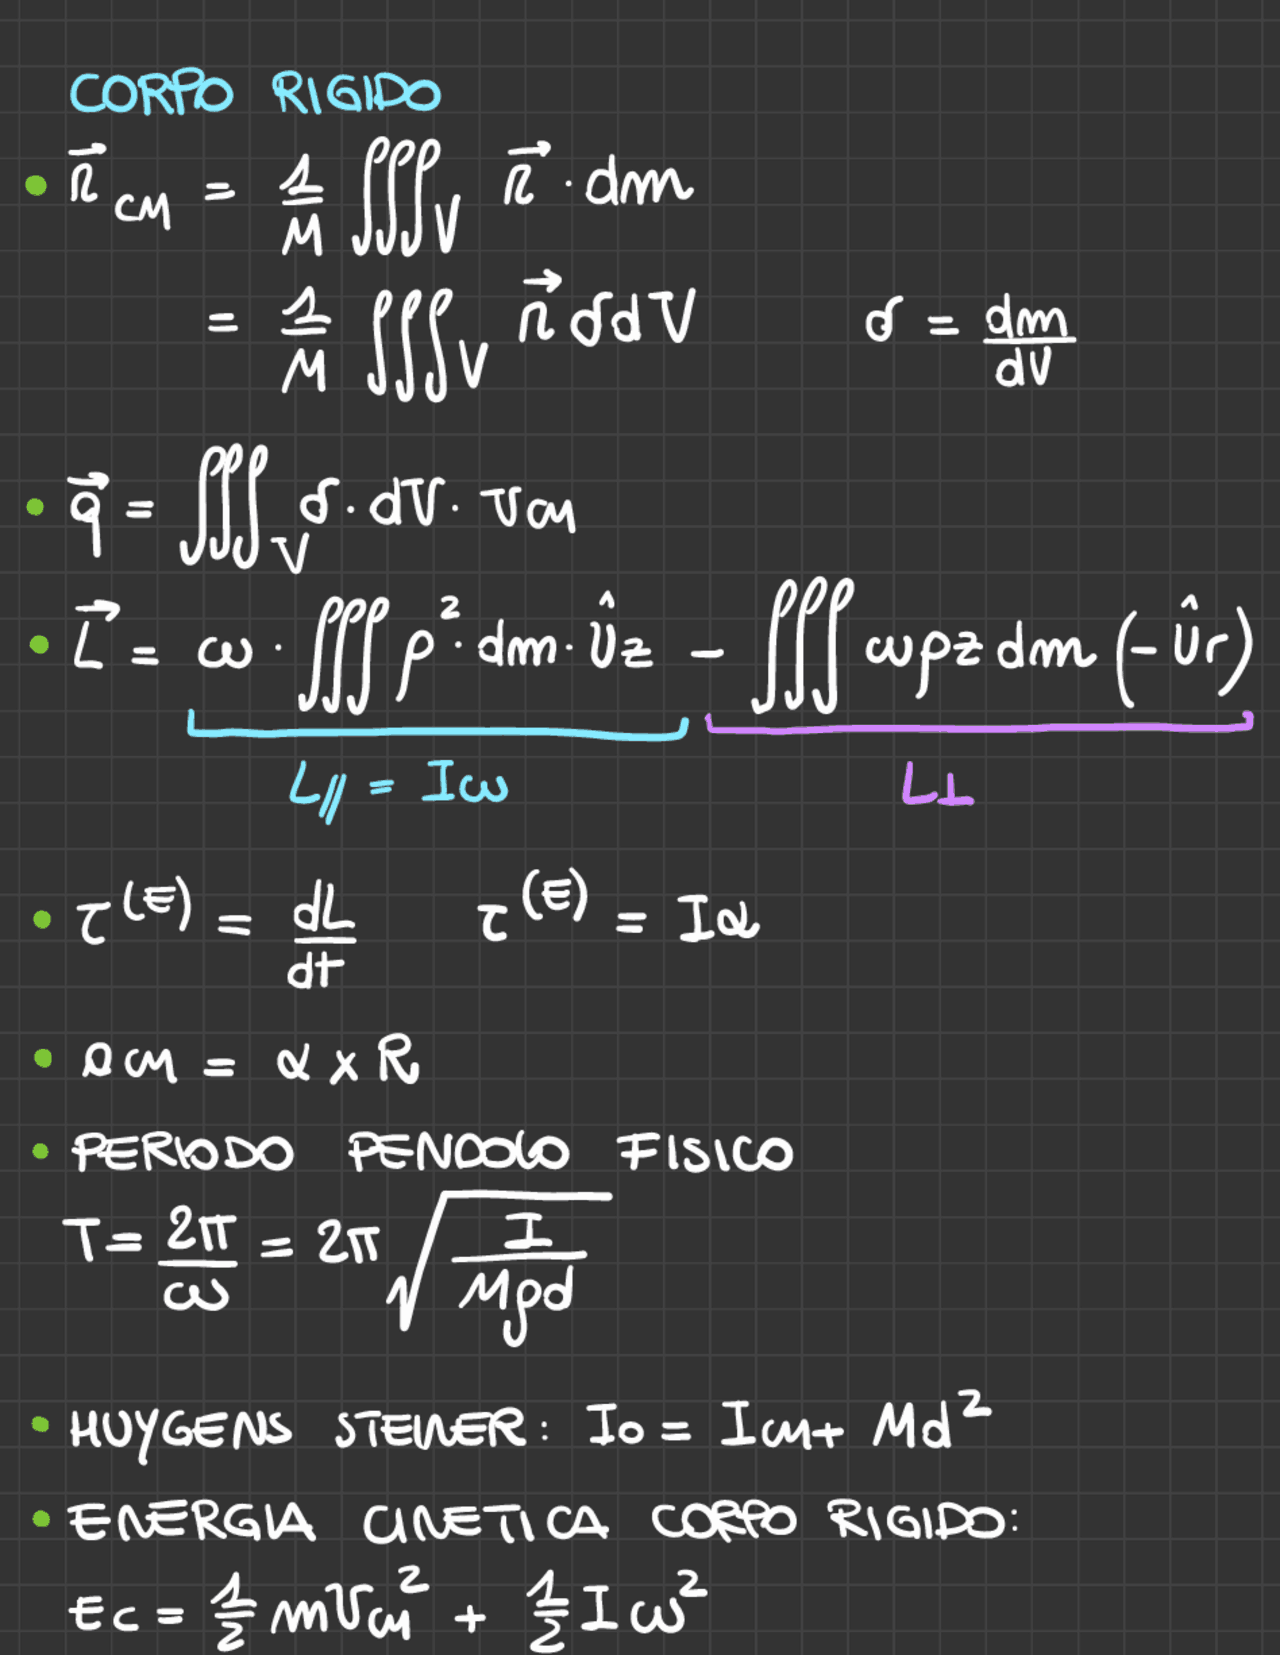 CORPO RIGIDO
• r⃗ CM = 1/M ∭V r⃗ · dm
= 1/M ∭V r⃗ δdV δ = dm/dV
• q⃗ = ∭V δ · dV · vCM
• L⃗ = ω · ∭ ρ² · dm · Ûz - ∭ ωρz dm (- Ûr)
L// = Iω L⊥
• τ^(E) = dL/dt τ^(E) = Iα
• aCM = α x R
• PERIODO PENDOLO FISICO
T = 2π/ω = 2π √(I/Mgd)
• HUYGENS STEINER: Io = ICM + Md²
• ENERGIA CINETICA CORPO RIGIDO:
Ec = 1/2 mvCM² + 1/2 Iω²